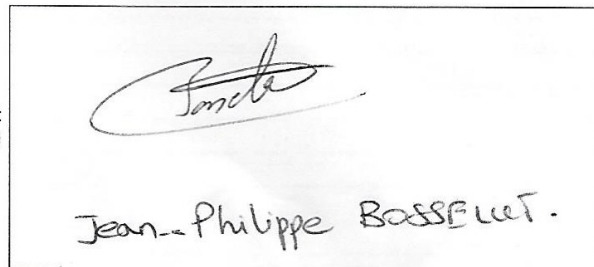 Jean-Philippe BOSSELUT.